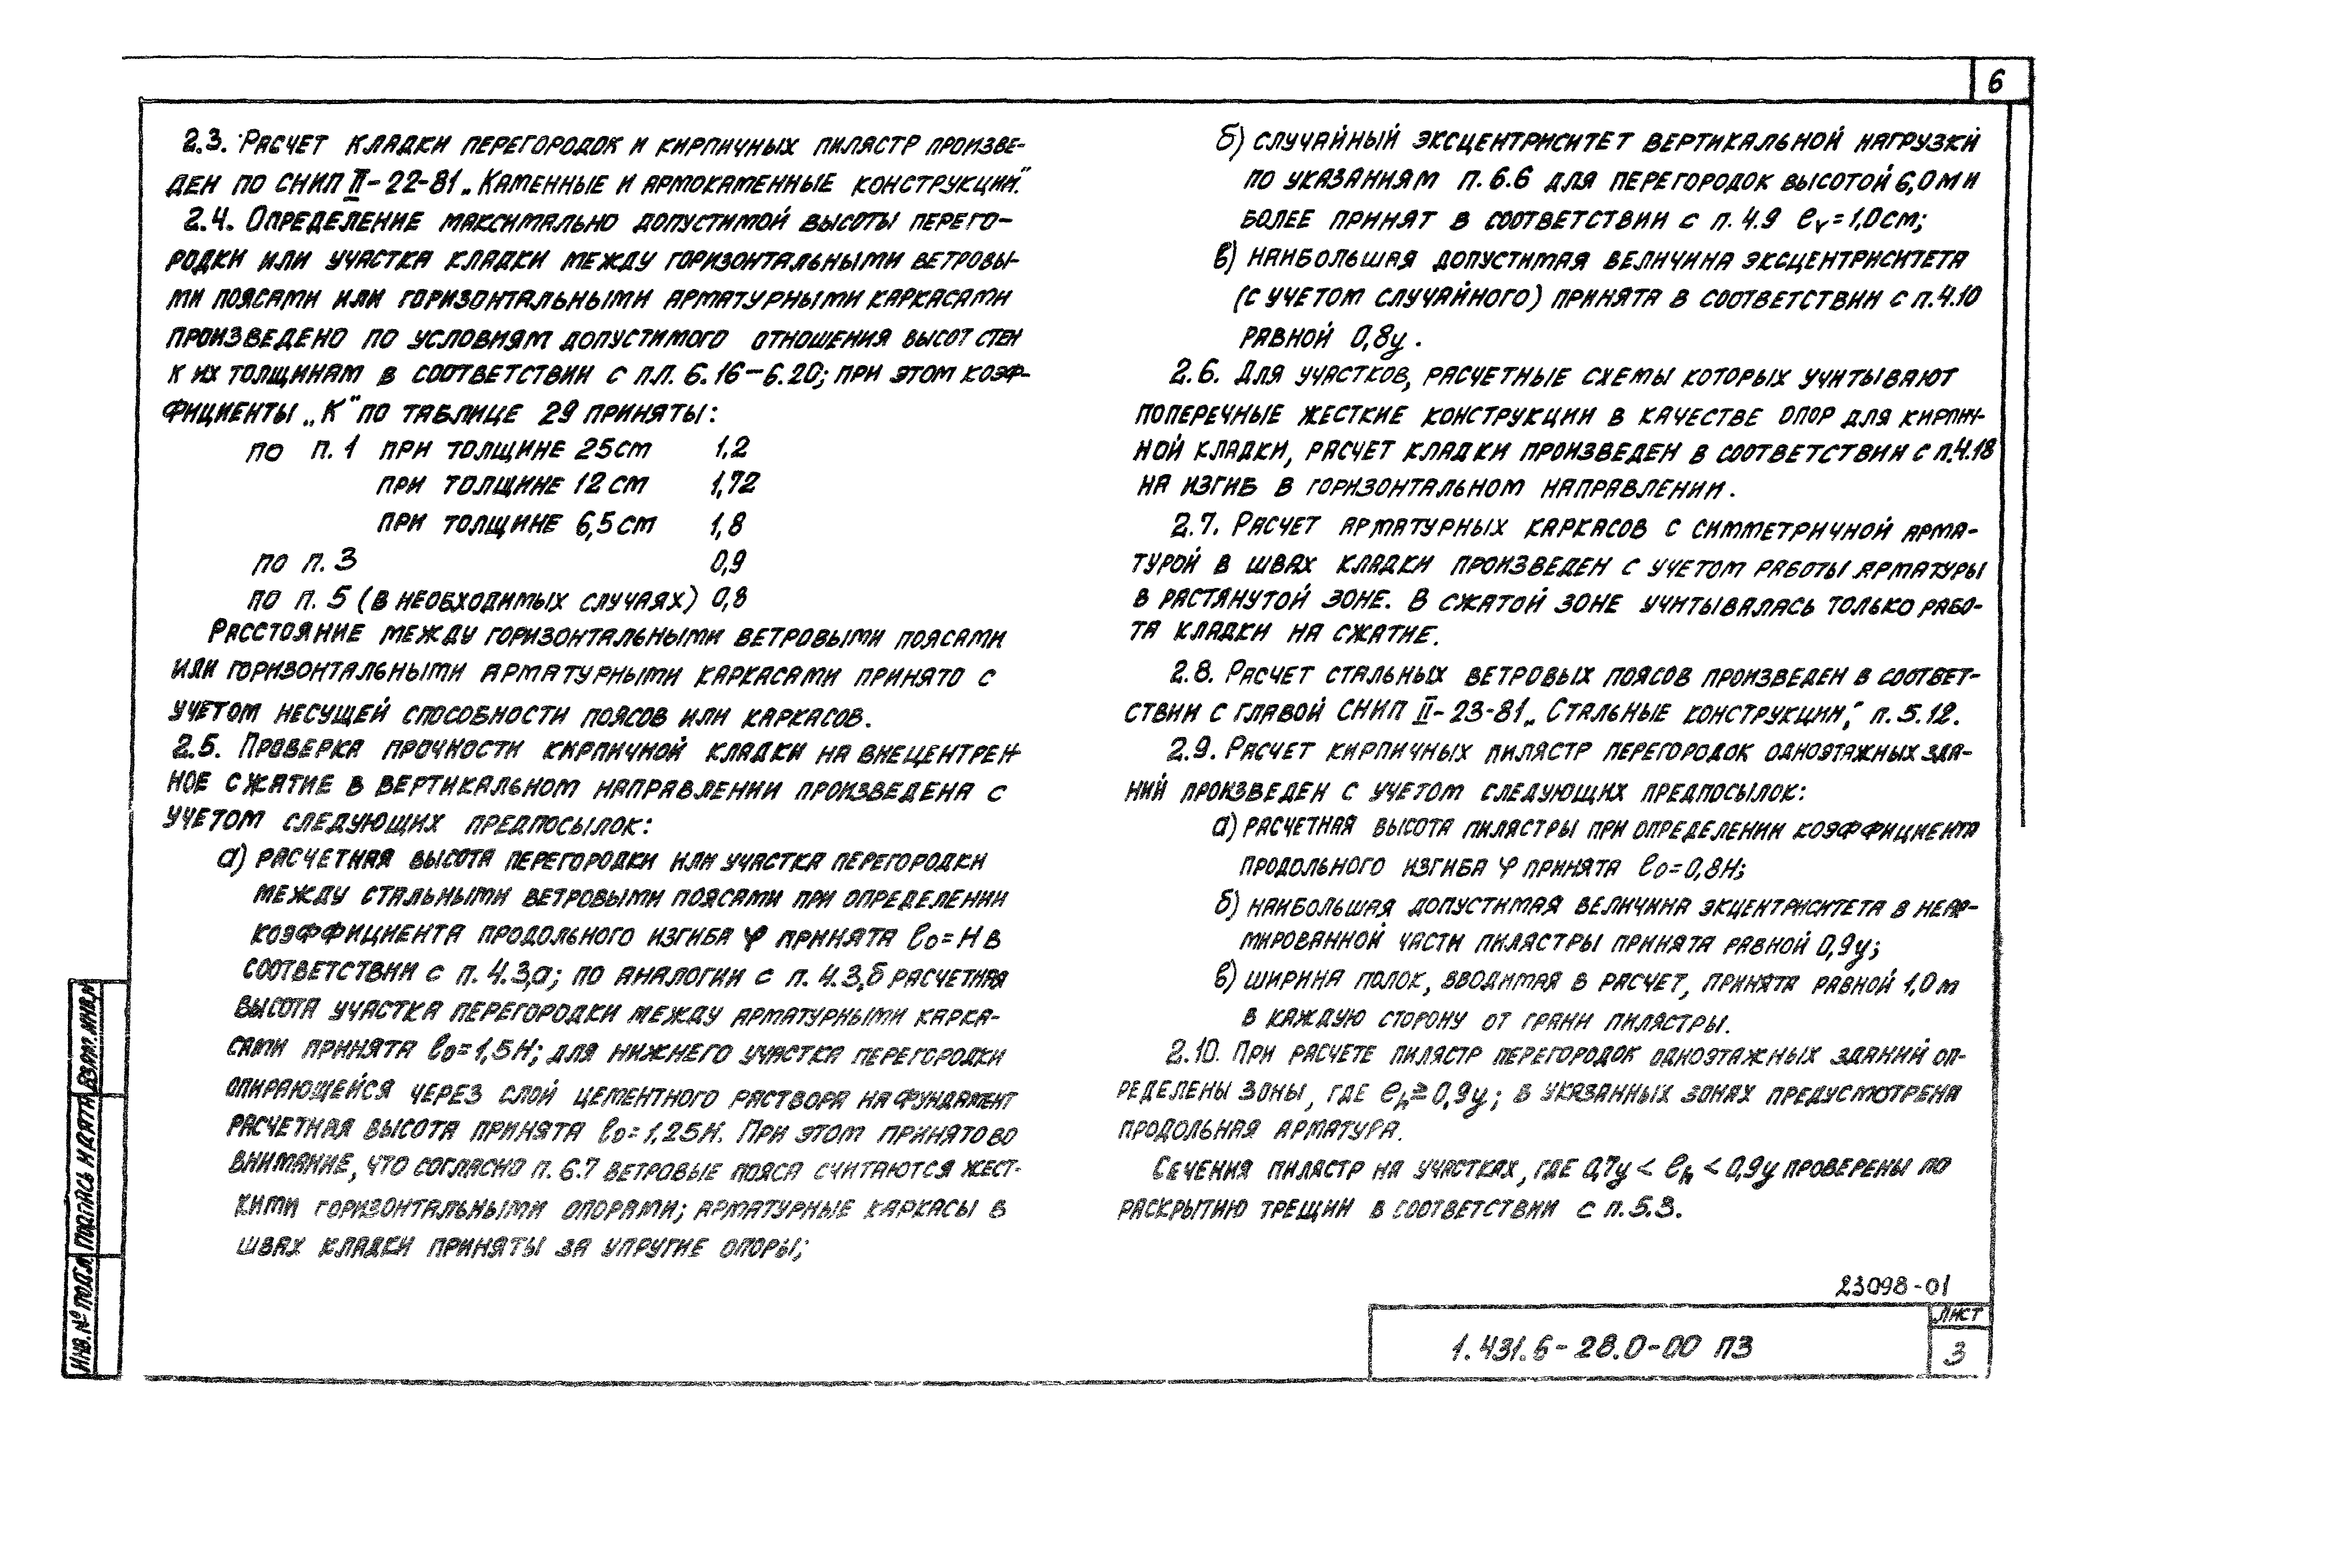 6
2.3. Расчет кладки перегородок и кирпичных пилястр произве-
ден по СНиП II-22-81 „Каменные и армокаменные конструкции."
2.4. Определение максимально допустимой высоты перего-
родки или участка кладки между горизонтальными ветровы-
ми поясами или горизонтальными арматурными каркасами
произведено по условиям допустимого отношения высот стен
к их толщинам в соответствии с п.п. 6.16-6.20; при этом коэф-
фициенты „К" по таблице 29 приняты:
по п. 1 при толщине 25 см 1,2
при толщине 12 см 1,72
при толщине 6,5 см 1,8
по п. 3 0,9
по п. 5 (в необходимых случаях) 0,8
Расстояние между горизонтальными ветровыми поясами
или горизонтальными арматурными каркасами принято с
учетом несущей способности поясов или каркасов.
2.5. Проверка прочности кирпичной кладки на внецентрен-
ное сжатие в вертикальном направлении произведена с
учетом следующих предпосылок:
а) расчетная высота перегородки или участка перегородки
между стальными ветровыми поясами при определении
коэффициента продольного изгиба φ принята l₀=H в
соответствии с п. 4.3,а; по аналогии с п. 4.3,б расчетная
высота участка перегородки между арматурными карка-
сами принята l₀=1,5H; для нижнего участка перегородки
опирающейся через слой цементного раствора на фундамент
расчетная высота принята l₀=1,25H. При этом принято во
внимание, что согласно п. 6.7 ветровые пояса считаются жест-
кими горизонтальными опорами; арматурные каркасы в
швах кладки приняты за упругие опоры;
б) случайный эксцентриситет вертикальной нагрузки
по указаниям п. 6.6 для перегородок высотой 6,0 м и
более принят в соответствии с п. 4.9 eᵥ=1,0 см;
в) наибольшая допустимая величина эксцентриситета
(с учетом случайного) принята в соответствии с п. 4.10
равной 0,8y.
2.6. Для участков, расчетные схемы которых учитывают
поперечные жесткие конструкции в качестве опор для кирпич-
ной кладки, расчет кладки произведен в соответствии с п. 4.18
на изгиб в горизонтальном направлении.
2.7. Расчет арматурных каркасов с симметричной арма-
турой в швах кладки произведен с учетом работы арматуры
в растянутой зоне. В сжатой зоне учитывалась только рабо-
та кладки на сжатие.
2.8. Расчет стальных ветровых поясов произведен в соответ-
ствии с главой СНиП II-23-81 „Стальные конструкции," п. 5.12.
2.9. Расчет кирпичных пилястр перегородок одноэтажных зда-
ний произведен с учетом следующих предпосылок:
а) расчетная высота пилястры при определении коэффициента
продольного изгиба φ принята l₀=0,8H;
б) наибольшая допустимая величина экцентриситета в неар-
мированной части пилястры принята равной 0,9y;
в) ширина полок, вводимая в расчет, принята равной 1,0 м
в каждую сторону от грани пилястры.
2.10. При расчете пилястр перегородок одноэтажных зданий оп-
ределены зоны, где eₕ≥0,9y; в указанных зонах предусмотрена
продольная арматура.
Сечения пилястр на участках, где 0,7y < eₕ < 0,9y проверены по
раскрытию трещин в соответствии с п. 5.3.
23098-01
1.431.6-28.0-00 ПЗ
Лист
3
Инв. № подл. Подпись и дата Взам. инв. №